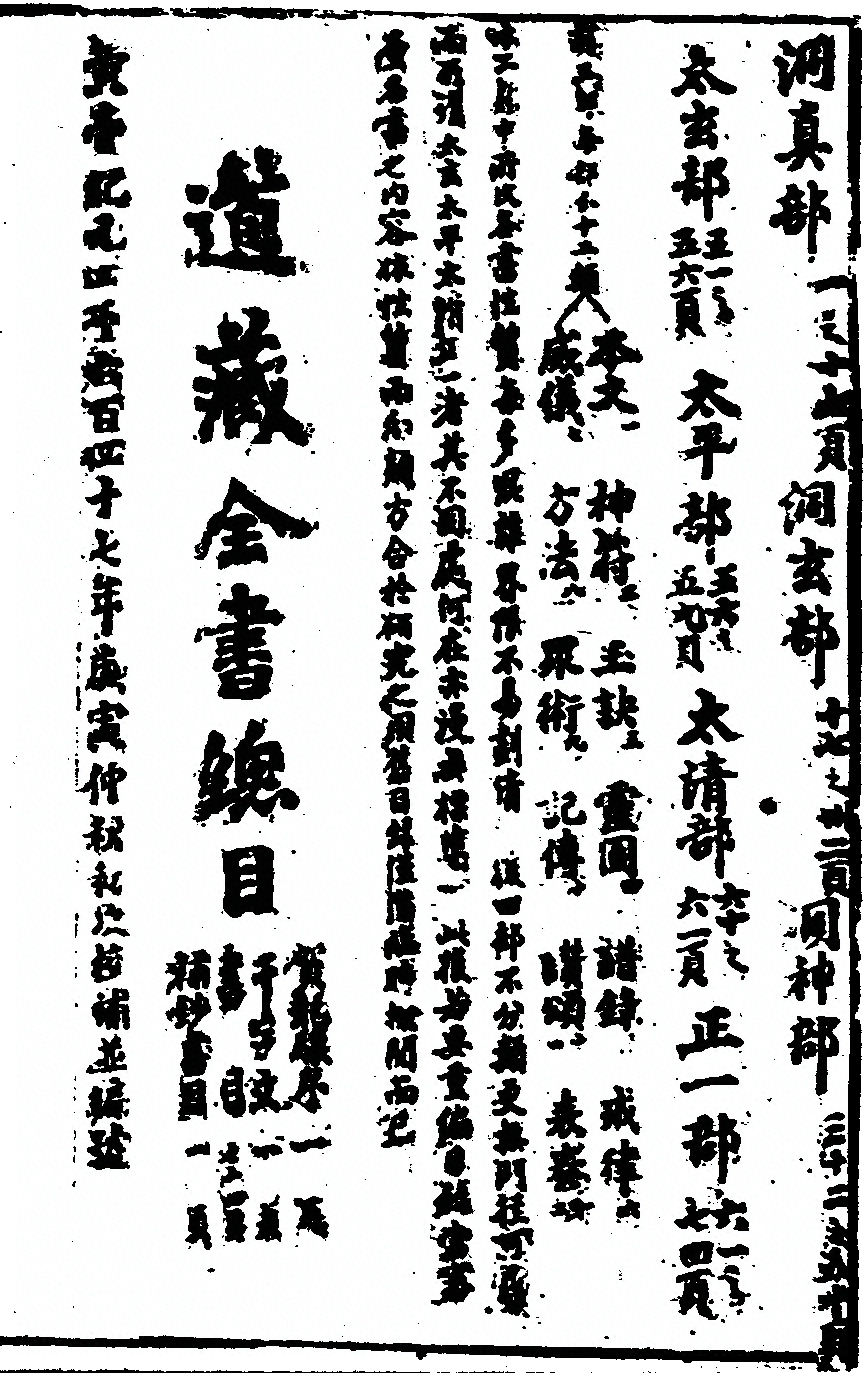 洞真部 一之十七頁 洞玄部 十七之卅二頁 洞神部 三十二之五十頁
太玄部 五一之五六頁 太平部 五六之五九頁 太清部 六十之六一頁 正一部 六一之七四頁
每部分十二類
本文一 神符二 玉訣三 靈圖四 譜錄五 戒律六
威儀七 方法八 眾術九 記傳十 讚頌 表奏
中所收各書性質每多混雜界限不易劃清 後四部不分類更無門徑可尋
而所謂太玄太平太清正一者其不同處何在亦漫無標準 此後若要重編目錄當審
各書之內容依性質而分類方合於研究之用舊日錄僅備臨時檢閱而已
道藏全書總目
重編緣序一頁
千字文一頁
書目
補鈔書目一頁
黃帝紀元四千六百四十七年庚寅仲秋校補並編號